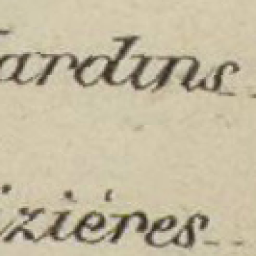 Jardins
izières